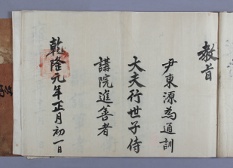 教旨
尹東源為通訓
大夫行世子侍
講院進善者
乾隆元年正月初一日